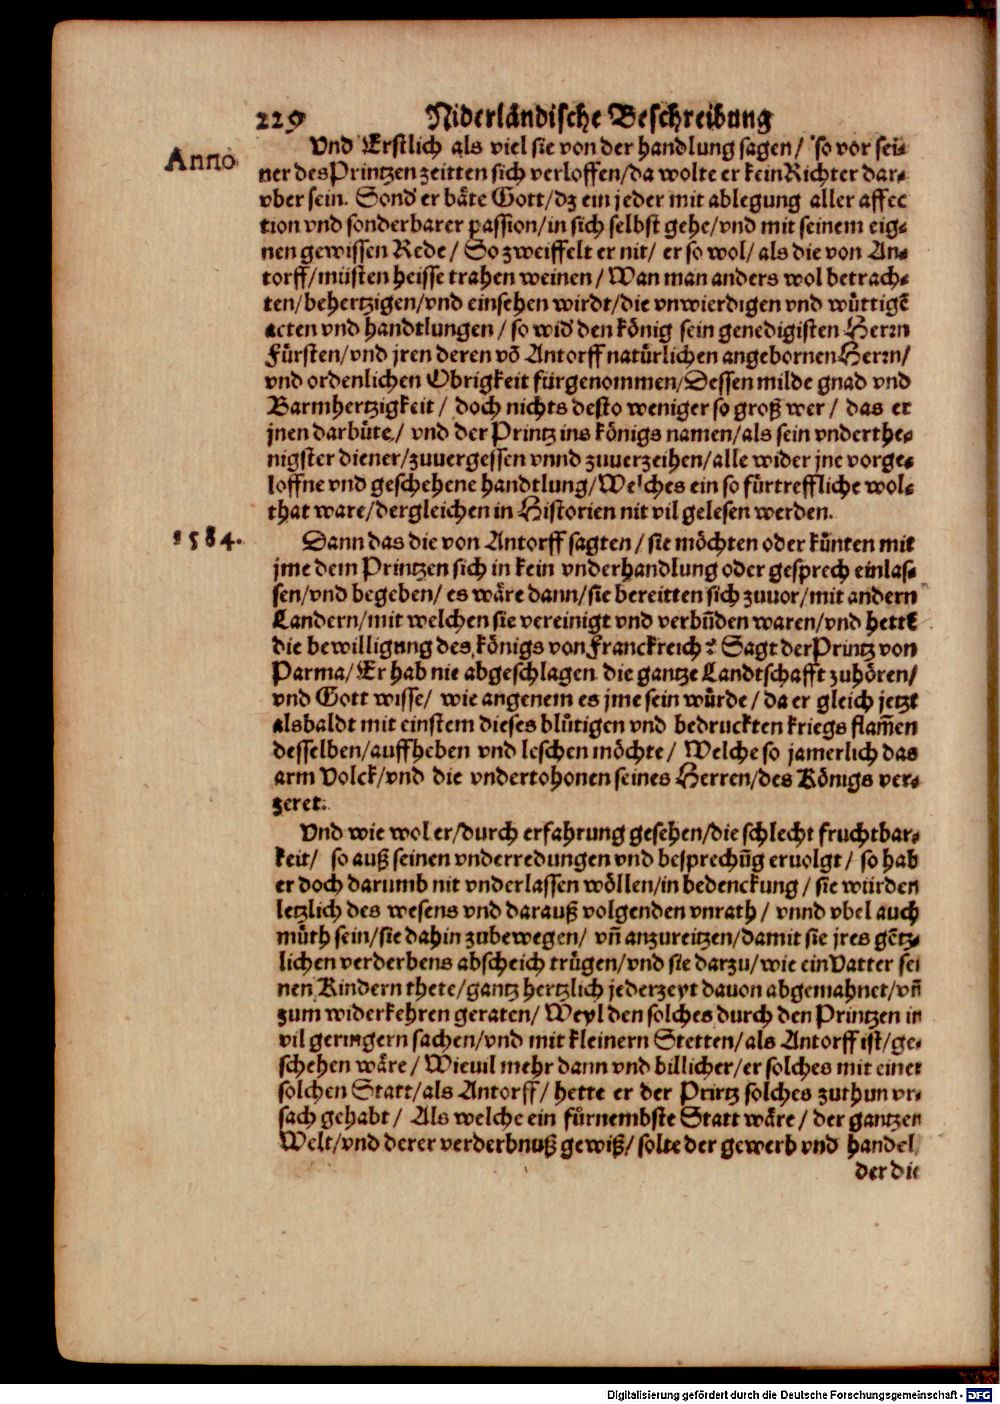 229 Niderländische Beschreibung
Anno
Vnd Erstlich als viel sie von der handlung sagen/ so vor sei-
ner des Printzen zeitten sich verloffen/da wolte er kein Richter dar-
vber sein. Sond̕ er bäte Gott/dz ein jeder mit ablegung aller affec
tion vnd sonderbarer passion/in sich selbst gehe/vnd mit seinem eig-
nen gewissen Rede/ So zweiffelt er nit/ er so wol/ als die von An-
torff/müsten heisse trahen weinen/ Wan man anders wol betrach-
ten/behertzigen/vnd einsehen wirdt/die vnwierdigen vnd wüttigē
acten vnd handtlungen/ so wid̕ den könig sein genedigisten Herrn
Fürsten/vnd jren deren vō Antorff natürlichen angebornen Herrn/
vnd ordenlichen Obrigkeit fürgenommen/Dessen milde gnad vnd
Barmhertzigkeit/ doch nichts desto weniger so groß wer/ das er
jnen darbüte/ vnd der Printz ins königs namen/als sein vnderthe-
nigster diener/zuuergessen vnnd zuuerzeihen/alle wider jne vorge-
loffne vnd geschehene handtlung/Welches ein so fürtreffliche wol-
that ware/dergleichen in Historien nit vil gelesen werden.
1584.
Dann das die von Antorff sagten/ sie möchten oder künten mit
jme dem Printzen sich in kein vnderhandlung oder gesprech einlas-
sen/vnd begeben/ es wäre dann/sie bereitten sich zuuor/mit andern
Landern/mit welchen sie vereinigt vnd verbūden waren/vnd hette
die bewilligung des königs von Franckreich: Sagt der Printz von
Parma/ Er hab nie abgeschlagen die gantze Landtschafft zuhören/
vnd Gott wisse/ wie angenem es jme sein würde/ da er gleich jetzt
alsbaldt mit einstem dieses blütigen vnd bedruckten kriegs flam̄en
desselben/auffheben vnd leschen möchte/ Welche so jamerlich das
arm Volck/vnd die vndertohonen seines Herren/des Königs ver-
zeret.
Vnd wie wol er/durch erfahrung gesehen/die schlecht fruchtbar-
keit/ so auß seinen vnderredungen vnd besprechūg eruolgt/ so hab
er doch darumb nit vnderlassen wöllen/in bedenckung/ sie würden
letzlich des wesens vnd darauß volgenden vnrath/ vnnd vbel auch
müth sein/sie dahin zubewegen/ vn̄ anzureitzen/damit sie jres gētz-
lichen verderbens abscheich trügen/vnd sie darzu/wie ein Vatter sei
nen Kindern thete/gantz hertzlich jederzeyt dauon abgemahnet/vn̄
zum widerkehren geraten/ Weyl den solches durch den Printzen in
vil geringern sachen/vnd mit kleinern Stetten/als Antorff ist/ge-
schehen wäre/ Wieuil mehr dann vnd billicher/er solches mit einer
solchen Statt/als Antorff/ hette er der Printz solches zuthun vr-
sach gehabt/ Als welche ein fürnembste Statt wäre/ der gantzen
Welt/vnd derer verderbnuß gewiß/ solte der gewerb vnd handel,
der die
Digitalisierung gefördert durch die Deutsche Forschungsgemeinschaft - DFG